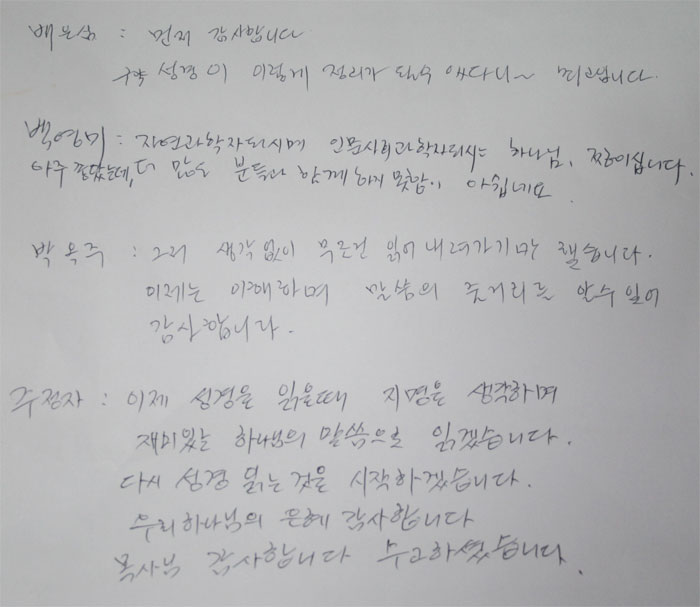 배은심 : 먼저 감사합니다
구약 성경이 이렇게 정리가 될수 있다니~ 띄고납니다.
백영미 : 자연과학자되시며 인문사회과학자되시는 하나님, 짱이십니다.
아주 짱였는데, 더 많은 분들과 함께하지못함이 아쉽네요
박옥주 : 그저 생각없이 무조건 읽어내려가기만 했습니다.
이제는 이해하며 말씀의 줄거리를 알수있어
감사합니다.
주정자 : 이제 성경을 읽을때 지명을 생각하며
재미있는 하나님의 말씀으로 읽겠습니다.
다시 성경 읽는것을 시작하겠습니다.
우리하나님의 은혜 감사합니다
목사님 감사합니다 수고하셨습니다.